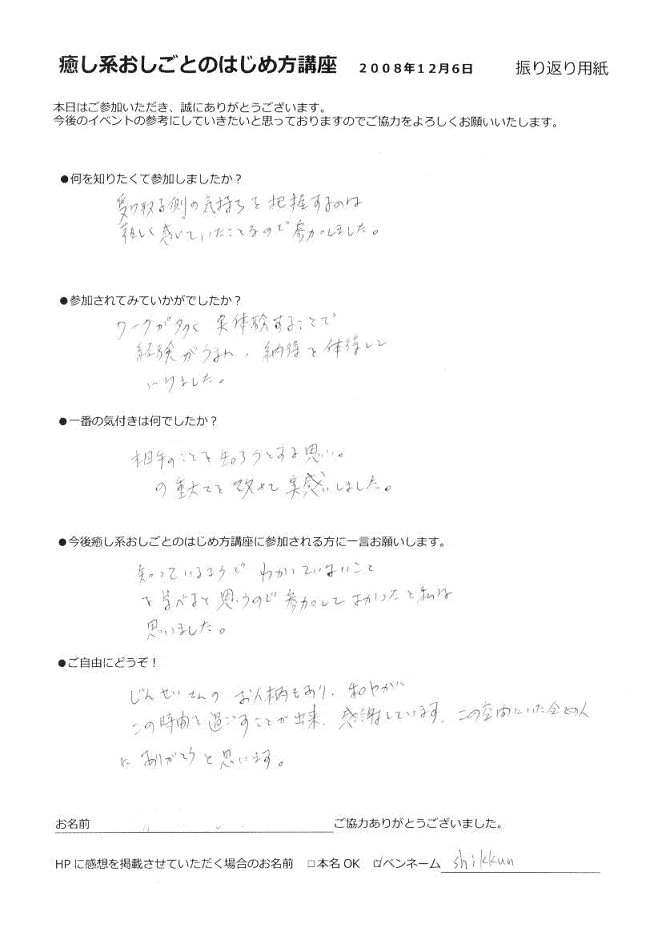 癒し系おしごとのはじめ方講座 2008年12月6日 振り返り用紙
本日はご参加いただき、誠にありがとうございます。
今後のイベントの参考にしていきたいと思っておりますのでご協力をよろしくお願いいたします。
●何を知りたくて参加しましたか？
受け取る側の気持ちを把握するのは
難しく感じていたところなので参加しました。
●参加されてみていかがでしたか？
ワークが多く 実体験することで
経験がうまれ、納得を体得して
いけました。
●一番の気付きは何でしたか？
相手のことを知ろうとする思い。
の重大さを改めて実感しました。
●今後癒し系おしごとのはじめ方講座に参加される方に一言お願いします。
知っているようで わかっていないこと
を学べると思うので参加してよかったと私は
思いました。
●ご自由にどうぞ！
じんせいさんの お人柄もあり、和やかに
この時間を過ごすことが出来、感謝しています。この空間にいた全ての人
に ありがとうと思います。
お名前 ご協力ありがとうございました。
HPに感想を掲載させていただく場合のお名前 □本名OK ☑ペンネーム shikkun